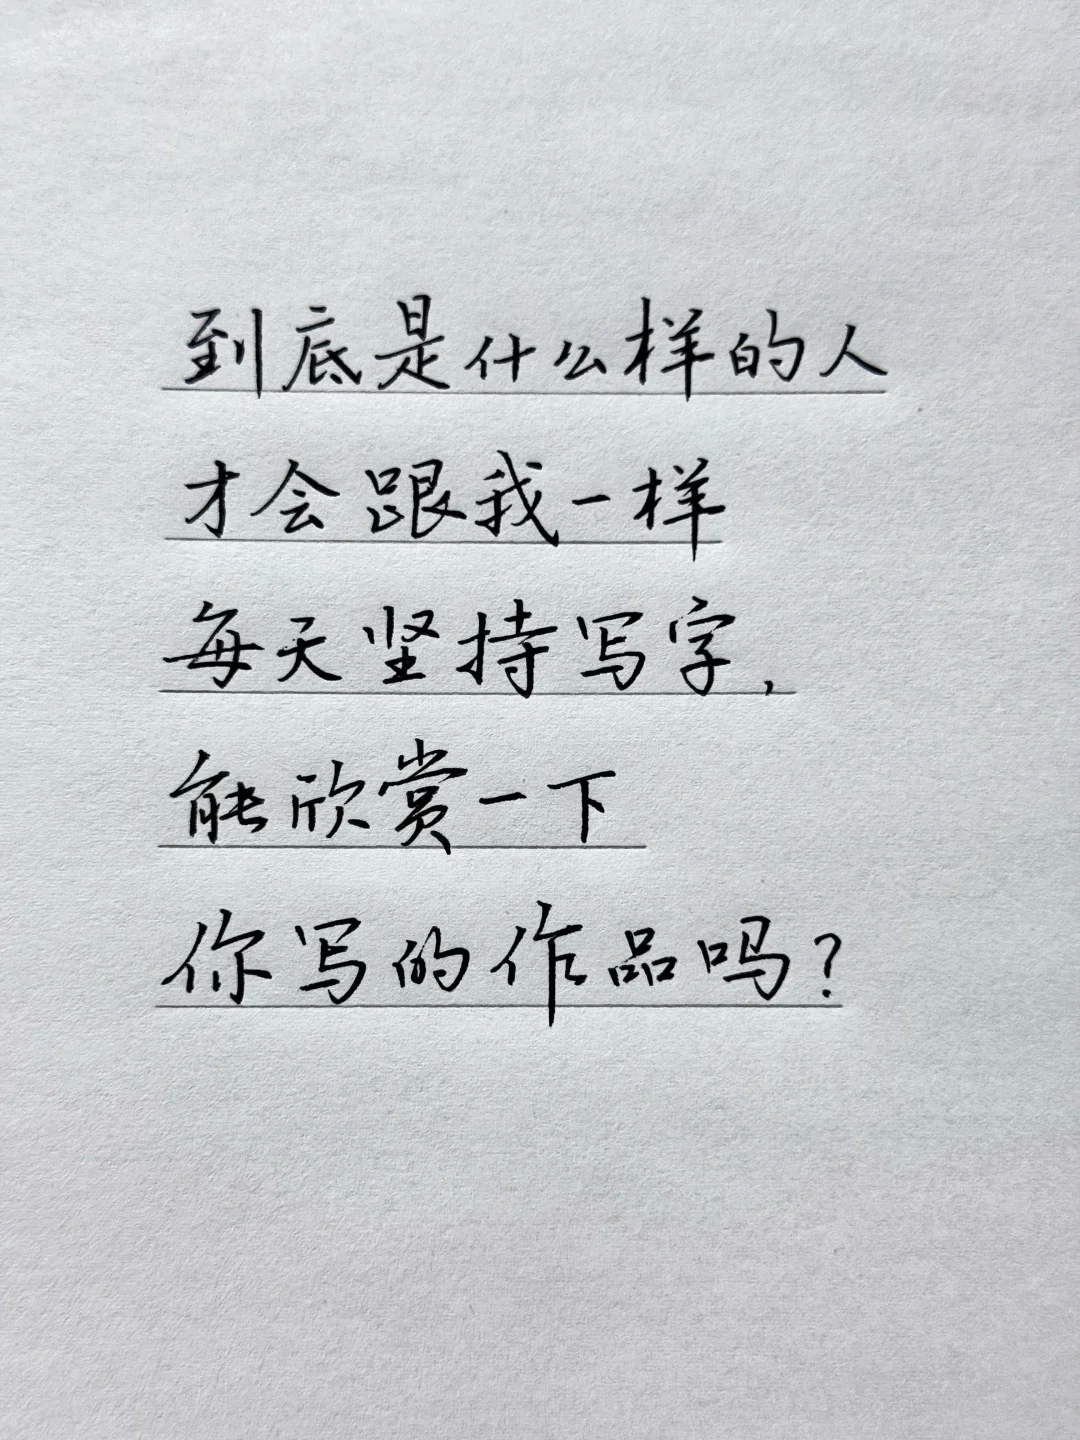 到底是什么样的人
才会跟我一样
每天坚持写字,
能欣赏一下
你写的作品吗?